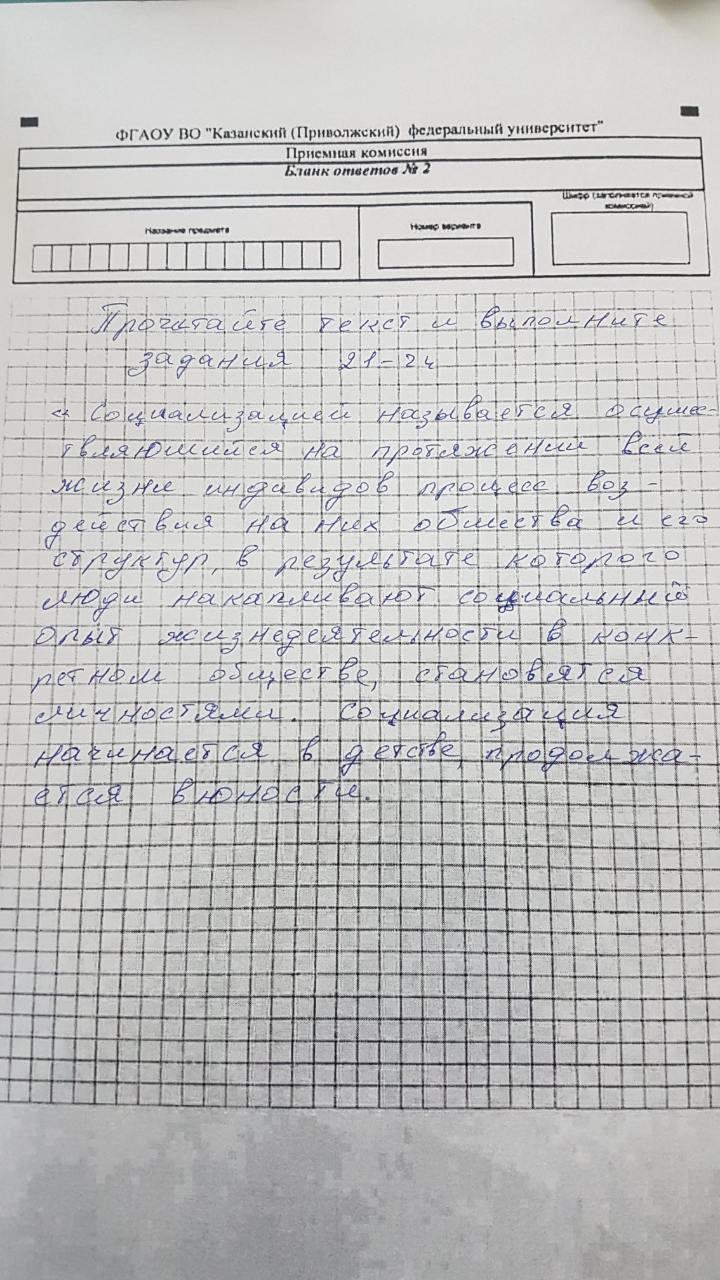 ФГАОУ ВО "Казанский (Приволжский) федеральный университет"
Приемная комиссия
Бланк ответов № 2
Название предмета
Номер варианта
Шифр (заполняется приемной
комиссией)
Прочитайте текст и выполните
задания 21-24
« Социализацией называется осуще-
твляющийся на протяжении всей
жизни индавидов процесс воз-
действия на них общества и его
структур, в результате которого
люди накапливают социальный
опыт жизнедеятельности в конк-
ретном обществе, становятся
личностями. Социализация
начинается в детстве, продолжа-
ется в юности.